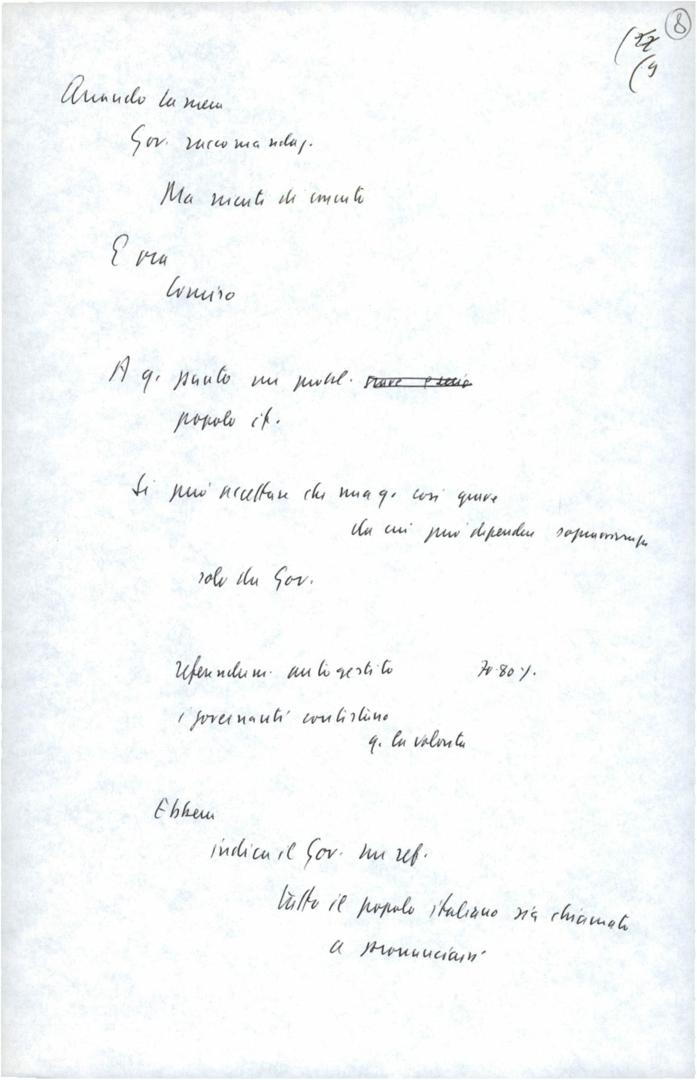 8
Gov. raccomandaz.
Ma niente di
E ora
Comiso
A q. punto un probl.
popolo it.
Si può accettare che una q. così grave
da cui può dipendere sopravvivenza
solo da Gov.
referendum autogestito 70-80%.
i governanti contestano
q. la volontà
Ebbene
indica il Gov. un ref.
tutto il popolo italiano sia chiamato
a pronunciarsi